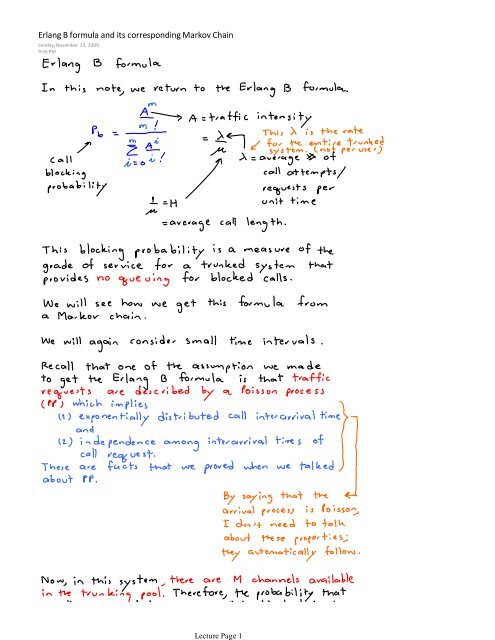 Erlang B formula and its corresponding Markov Chain
Sunday, November 29, 2009
9:36 PM
Erlang B formula
In this note, we return to the Erlang B formula.
P_b = (A^m / m!) / (Σ_{i=0}^{m} A^i / i!)
call
blocking
probability
A = traffic intensity
= λ / μ
This λ is the rate
for the entire trunked
system. (not per user)
λ = average # of
call attempts/
requests per
unit time
1/μ = H
= average call length.
This blocking probability is a measure of the
grade of service for a trunked system that
provides no queuing for blocked calls.
We will see how we get this formula from
a Markov chain.
We will again consider small time intervals.
Recall that one of the assumption we made
to get the Erlang B formula is that traffic
requests are described by a Poisson process
(PP) which implies
(1) exponentially distributed call interarrival time
and
(2) independence among interarrival times of
call request.
These are facts that we proved when we talked
about PP.
By saying that the
arrival process is Poisson,
I don't need to talk
about these properties;
they automatically follow.
Now, in this system, there are M channels available
in the trunking pool. Therefore, the probability that
Lecture Page 1